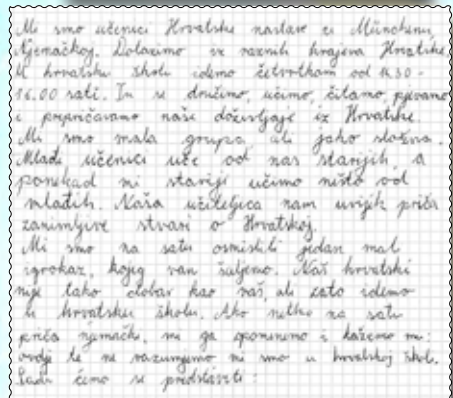 Mi smo učenici Hrvatske nastave u Münchenu,
Njemačkoj. Dolazimo iz raznih krajeva Hrvatske.
U hrvatsku školu idemo četvrtkom od 14.30 -
16.00 sati. Tu se družimo, učimo, čitamo, pjevamo
i prepričavamo naše doživljaje iz Hrvatske.
Mi smo mala grupa, ali jako složna.
Mlađi učenici uče od nas starijih, a
ponekad mi stariji učimo nešto od
mlađih. Naša učiteljica nam uvijek priča
zanimljive stvari o Hrvatskoj.
Mi smo na satu osmislili jedan mali
igrokaz, kojeg vam šaljemo. Naš hrvatski
nije tako dobar kao vaš, ali zato idemo
u hrvatsku školu. Ako netko na satu
priča njemački, mi ga opomenemo i kažemo mu:
ovdje te ne razumijemo mi smo u hrvatskoj školi.
Sada ćemo se predstaviti: